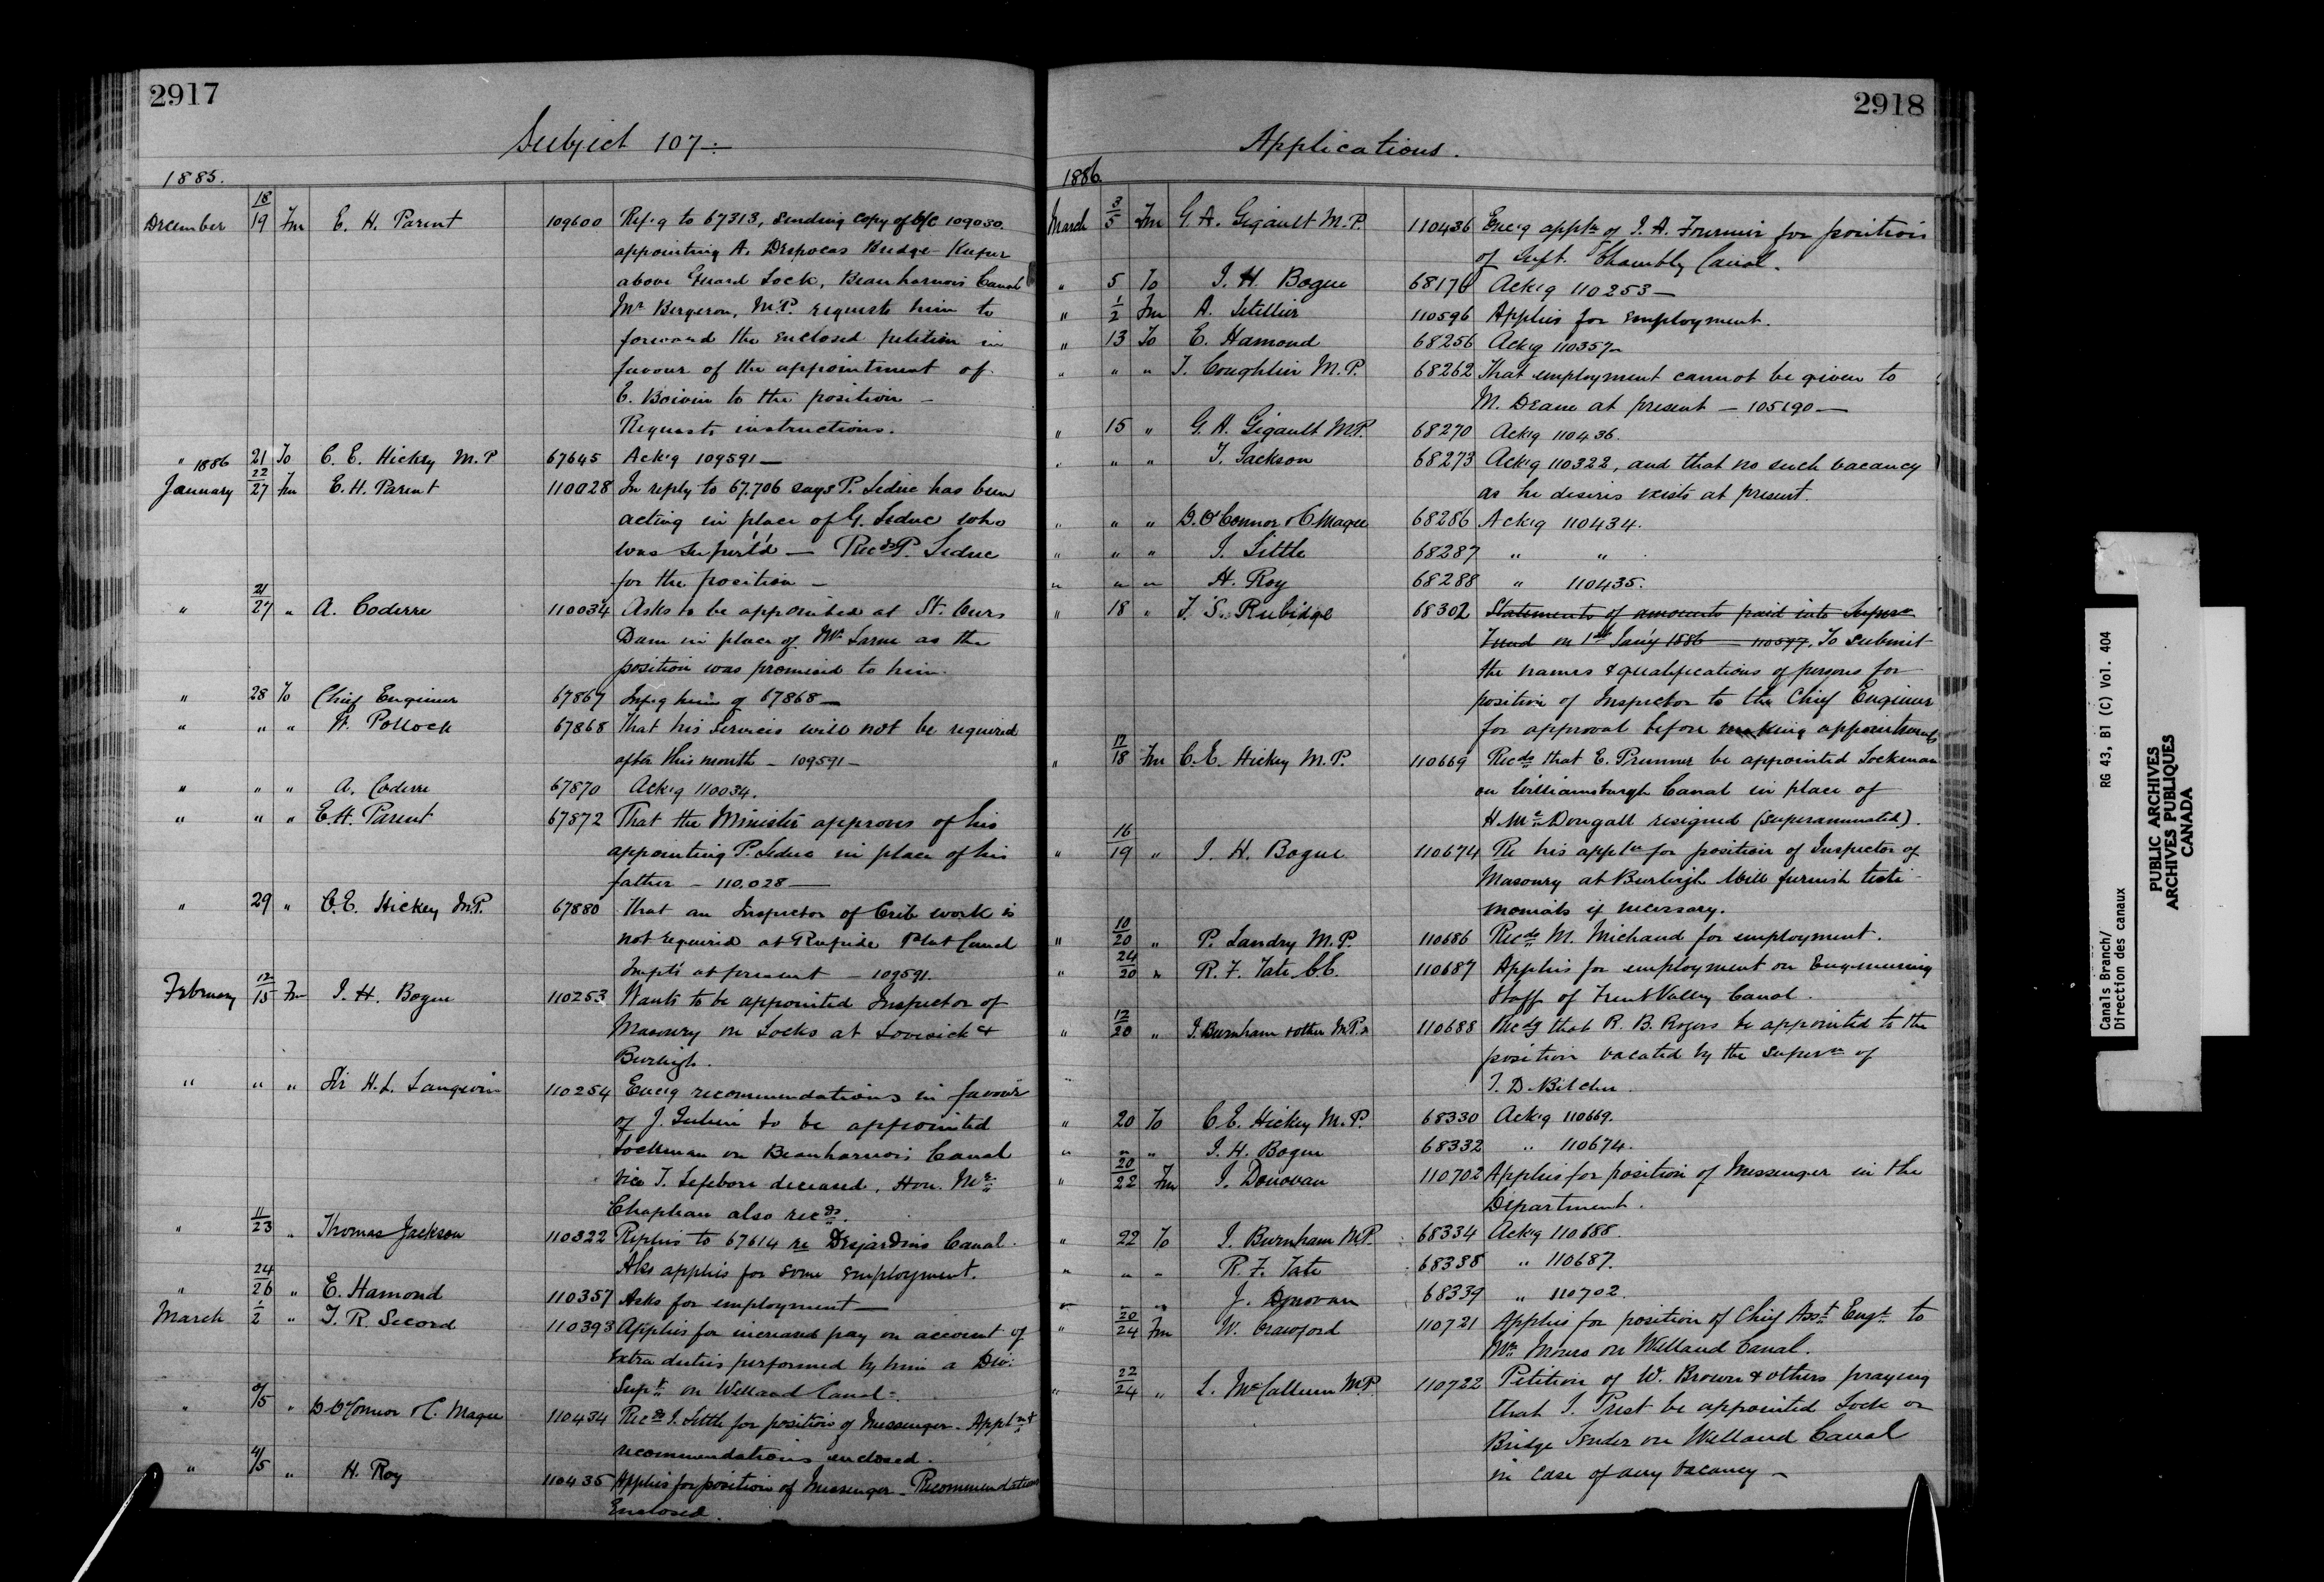 2917
Subject 107
1885.
December 18/19 Fm E. H. Parent 109600 Ref'g to 67313, sending copy of O/C 109030
appointing A. Despocas Bridge Keeper
above Guard Lock, Beauharnois Canal
Mr Bergeron, M.P. requests him to
forward the enclosed petition in
favour of the appointment of
E. Boivin to the position –
Requests instructions.
" 21 To C. E. Hickey M.P 67645 Ack'g 109591 —
1886
January 22/27 Fm E. H. Parent 110028 In reply to 67.706 says P. Leduc has been
acting in place of G. Leduc who
was super'd — Recds P. Leduc
for the position –
" 21/27 " A. Coderre 110034 Asks to be appointed at St. Ours
Dam in place of Mr as the
position was promised to him.
" 28 To Chief Engineer 67867 Inf'g him of 67868 —
" " " W. Pollock 67868 That his services will not be required
after this month – 109591 –
" " " A. Coderre 67870 Ack'g 110034.
" " " E. H. Parent 67872 That the Minister approves of his
appointing P. Leduc in place of his
father – 110,028 —
" 29 " C. E. Hickey M.P. 67880 That an Inspector of Crib work is
not required at Rapide Plat Canal
Impts at present – 109591.
February 12/15 Fm J. H. Bogue 110253 Wants to be appointed Inspector of
Masonry on Locks at Lovesick &
Burleigh.
" " " Sir H. L. Langevin 110254 Enc'g recommendations in favour
of J. to be appointed
Lockman on Beauharnois Canal
vice T. Lefebvre deceased, Hon. Mr
Chapleau also recds.
" 11/23 " Thomas Jackson 110322 Replies to 67614 re Desjardins Canal.
Also applies for some employment.
" 24/26 " E. Hamond 110357 Asks for employment —
March 1/2 " T. R. Secord 110393 Applies for increased pay on account of
extra duties performed by him a Div:
Supt on Welland Canal –
" /5 " D. O'Connor & C. Magee 110434 Recds J. Little for position of Messenger – Appln &
recommendations enclosed.
" 4/5 " H. Roy 110435 Applies for position of Messenger – Recommendations
Enclosed.
2918
Applications.
1886.
March 3/5 Fm G. A. Gigault M.P. 110436 Enc'g appln of J. A. Fournier for position
of Supt. Chambly Canal.
" 5 To J. H. Bogue 68176 Ack'g 110253 —
" 1/2 Fm A. Letellier 110596 Applies for employment.
" 13 To E. Hamond 68256 Ack'g 110357 –
" " " T. Coughlin M.P. 68262 That employment cannot be given to
M. Deane at present – 105190 —
" 15 " G. A. Gigault M.P. 68270 Ack'g 110436.
" " " T. Jackson 68273 Ack'g 110322, and that no such vacancy
as he desires exists at present.
" " " D. O'Connor & C Magee 68286 Ack'g 110434.
" " " J. Little 68287 " "
" " " H. Roy 68288 " 110435.
" 18 " T. S. Rubidge 68302 Statements of amounts paid into Super
Fund on 1st Jan'y 1886 — 110597. To submit
the names & qualifications of persons for
position of Inspector to the Chief Engineer
for approval before making appointments
" 17/18 Fm C. E. Hickey M.P. 110669 Recds that E. Prunner be appointed Lockman
on Williamsburgh Canal in place of
H. McDougall resigned (superannuated).
" 16/19 " J. H. Bogue 110674 Re his appln for position of Inspector of
Masonry at Burleigh Will furnish testi-
monials if necessary.
" 10/20 " P. Landry M.P. 110686 Recds M. Michaud for employment.
" 24/20 " R. F. Tate C.E. 110687 Applies for employment on Engineering
Staff of Trent Valley Canal.
" 12/20 " J. Burnham & other M.P.s 110688 Recdg that R. B. Rogers be appointed to the
position vacated by the superan of
T. D. Belcher.
" 20 To C. E. Hickey M.P. 68330 Ack'g 110669.
" " " J. H. Bogue 68332 " 110674.
" 20/22 Fm J. Donovan 110702 Applies for position of Messenger in the
Department.
" 22 To J. Burnham M.P. 68334 Ack'g 110688.
" " " R. F. Tate 68338 " 110687.
" " " J. Donovan 68339 " 110702.
" 20/24 Fm W. Crawford 110721 Applies for position of Chief Asst Engr to
Mr on Welland Canal.
" 22/24 " L. McCallum M.P. 110722 Petition of W. Brown & others praying
that J. Prest be appointed Lock or
Bridge Tender on Welland Canal
in case of any vacancy –
Canals Branch/ RG 43, B1 (C) Vol. 404
Direction des canaux
PUBLIC ARCHIVES
ARCHIVES PUBLIQUES
CANADA